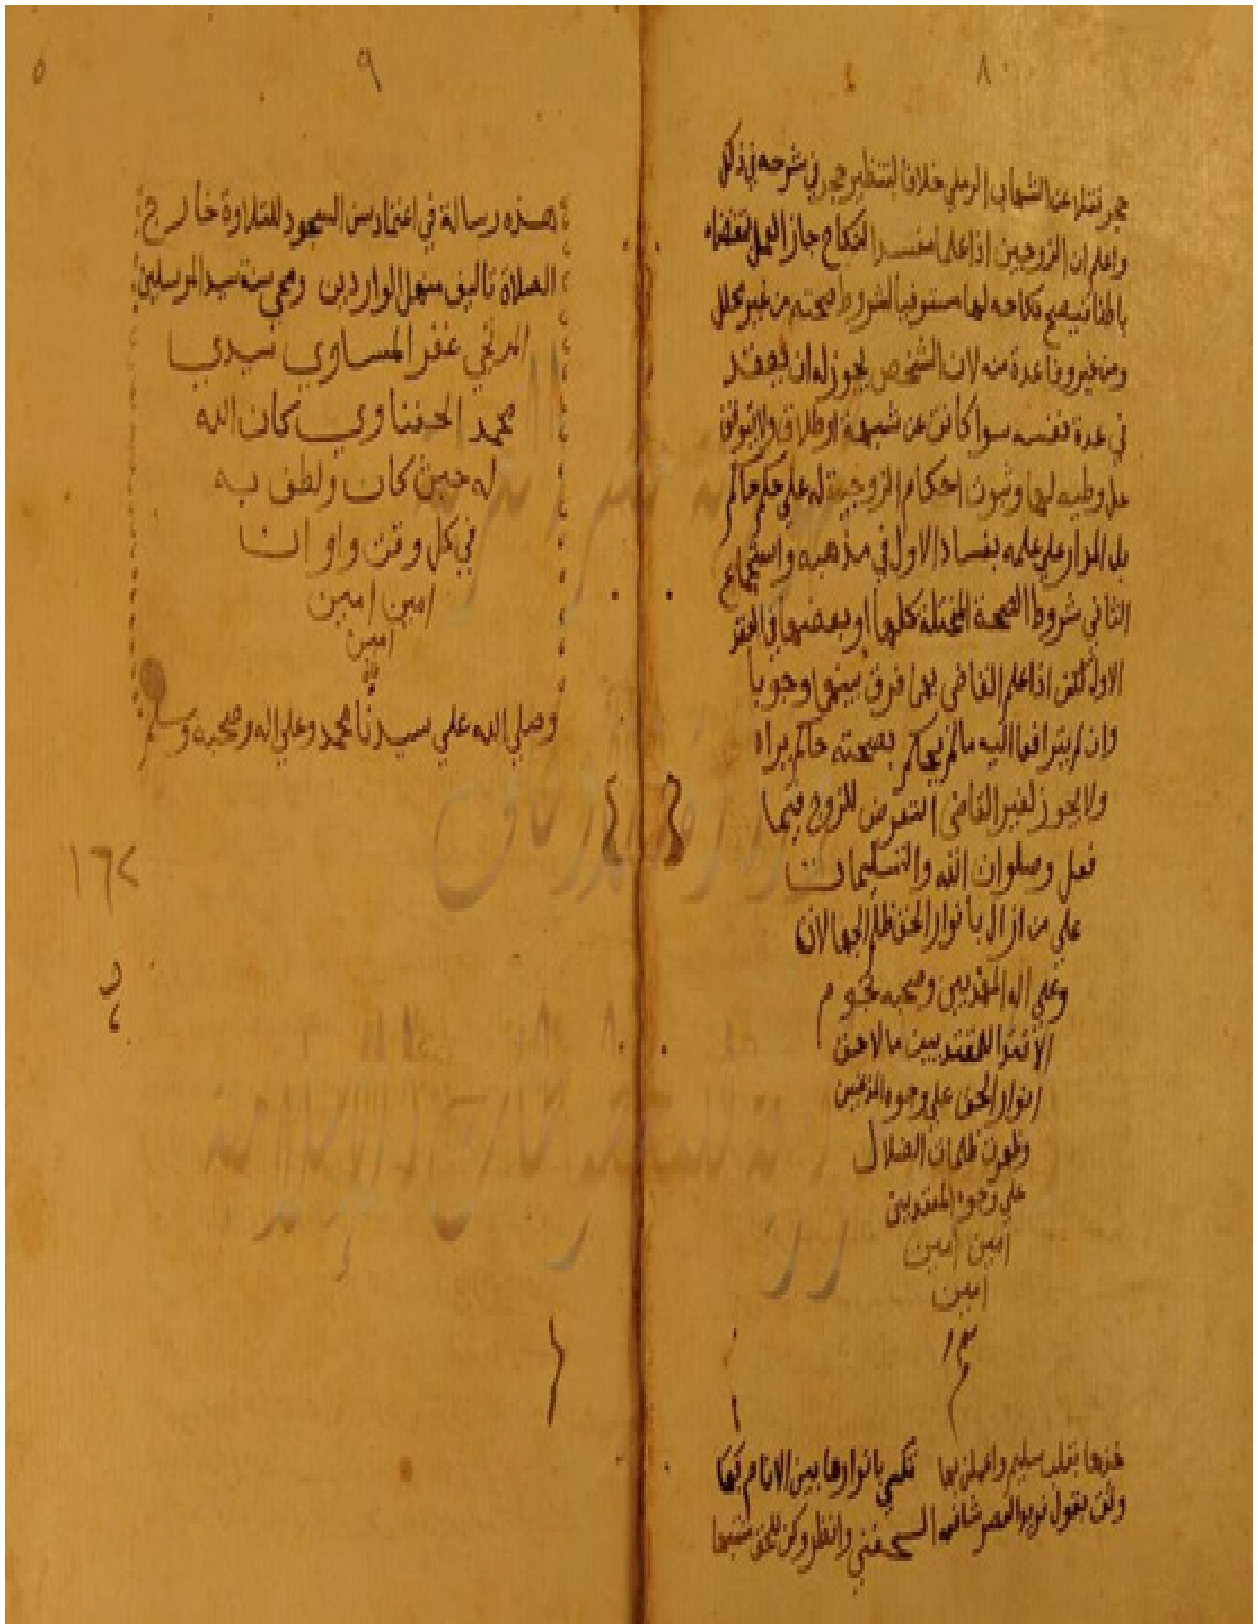 ٨
حجر نقلا عن الشهاب الرملي خلافا لتنظير حجر في شرحه في ذلك
واعلم ان الزوجين اذا علما مفسد النكاح جاز لهما العمل بقضاء
باطنا فيصح نكاحه لها مستوفيا لشروط صحته من غير محلل
ومن غير وفا عدة منه لان الشخص يجوز له ان يعقد
في عدة نفسه سوا كانت عن شبهة او طلاق ولا يتوقف
حل وطيه لها وثبوت احكام الزوجية له علي حكم حاكم
بل المدار علي علمه بفساد الاول في مذهبه واستجماع
الثاني شروط الصحة المختلة كلها او بعضها في العقد
الاول لكن اذا علم القاضي بهما فرق بينهما وجوبا
وان لم يترافعا اليه ما لم يحكم بصحته حاكم يراه
ولا يجوز لغير القاضي التعرض للزوج فيما
فعل وصلوات الله والتسليمات
علي من ازال بانوار الحق ظلم الجهالات
وعلي اله المهتدين وصحبه نجوم
الاقتدا للمقتدين ما لاحت
انوار الحق علي وجوه المذعنين
وظهرت ظلمات الضلال
علي وجوه المعتدين
امين امين
امين
م
خذها بقلب سليم واعملن بها تكسي بانوارها بين الانام بها
وثق بقول فريد العصر شافعه الحفني وانظر وكن للحق منتبها
٩
٥
هذه رسالة في اعتماد سن السجود للتلاوة خارج
الصلاة تاليف منهل الواردين ومحي سنة سيد المرسلين
الراجي عفو المساوي سيدي
محمد الحفناوي كان الله
له حيث كان ولطف به
في كل وقت واوان
امين امين
امين
وصلي الله علي سيدنا محمد وعلي اله وصحبه وسلم
١٦٢